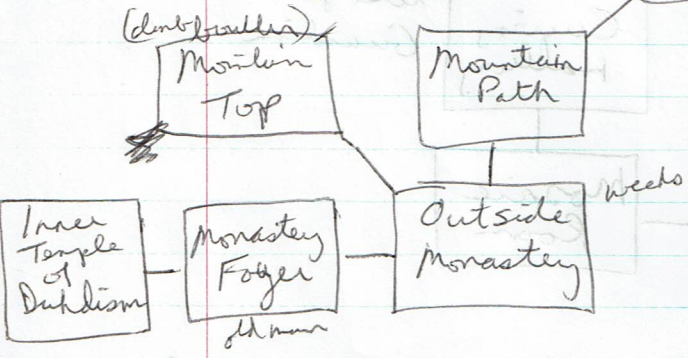 (climb boulder)
Mountain
Top
Mountain
Path
weeds
Inner
Temple
of
Duhdism
Monastery
Foyer
old man
Outside
Monastery